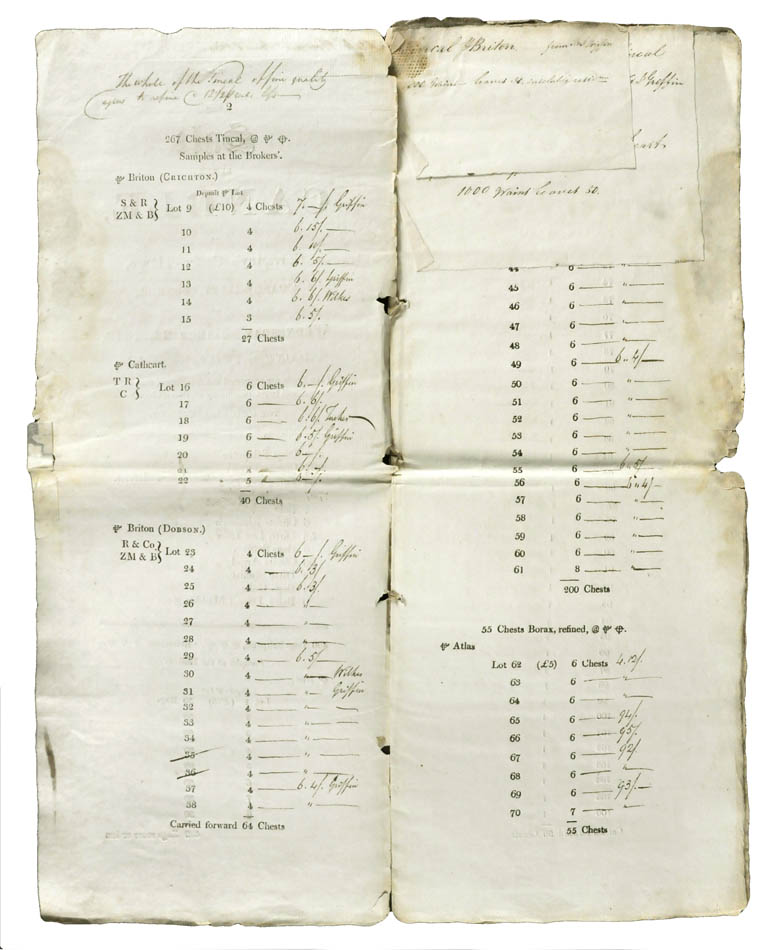 The whole of the Tincal of fine quality
agrees to refine @
2
267 Chests Tincal, @
Samples at the Brokers'.
Briton (CRICHTON.)
Deposit Lot
S & R
ZM & B} Lot 9 (£10) 4 Chests 7.—/. Griffin
10 4 6.15/. —
11 4 6.10/. —
12 4 6. 5/. —
13 4 6. 6/. Griffin
14 4 6. 6/. Wilkes
15 3 6. 5/.
27 Chests
Cathcart.
T R
C} Lot 16 6 Chests 6.—/. Griffin
17 6 — 6. 6/.
18 6 — 6.6/. Tucker
19 6 — 6.5/. Griffin
20 6 — 6.—/.
21 4
22 5
40 Chests
Briton (DOBSON.)
R & Co.
ZM & B} Lot 23 4 Chests 6 —/. Griffin
24 4 — 6. 3/.
25 4 — 6. 3/.
26 4 —
27 4 — " —
28 4 —
29 4 — 6. 5/. —
30 4 — " — Wilkes
31 4 — " — Griffin
32 4 — " —
33 4 — " —
34 4 — " —
35 4 — " —
36 4 — " —
37 4 — 6. 4/. Griffin
38 4 — " —
Carried forward 64 Chests
Tincal Briton from Mr Griffin
1000 Waint leaves 50.
44 6 — " —
45 6 — " —
46 6 — " —
47 6 — " —
48 6 — " —
49 6 — 6 " 4/—
50 6 — " —
51 6 — " —
52 6 — " —
53 6 — " —
54 6 — " —
55 6 — 6 " 5/—
56 6 — 6 " 4/—
57 6 — " —
58 6 — " —
59 6 — " —
60 6 — " —
61 8 — " —
200 Chests
55 Chests Borax, refined, @
Atlas
Lot 62 (£5) 6 Chests 4.12/.
63 6 — " —
64 6 — " —
65 6 — 94/.
66 6 — 95/.
67 6 — 92/.
68 6 — " —
69 6 — 93/. —
70 7 — " —
55 Chests